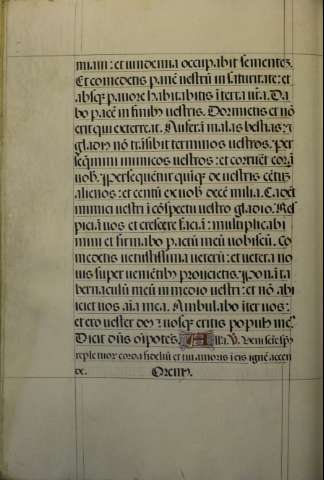 miam: et vindemia occupabit sementez.
Et comedetis panē vestrū in saturitate: et
absq; pauore habitabitis ī terra vr̄a. Da
bo pacē in finib; vestris. Dormietis et nō
erit qui exterreat. Auferā malas bestias: ⁊
gladiꝰ nō trāsibit terminos vestros. Per
seqmini inimicos vestros: et corruēt corā
vob. Persequentur quiq; de vestris cētū
alienos: et centū ex vob decē milia. Cadēt
inimici vestri ī cōspectu vestro gladio. Res
piciā vos et crescere faciā: multiplicabi
mini et firmabo pactū meū vobiscū. Co
medetis vetustissima veterū: et vetera no
uis superuenientib; proiicietis. Ponā ta
bernaculū meū in medio vestri: et nō abi
iciet vos aīa mea. Ambulabo īter vos:
et ero vester deꝰ: vosq; eritis popułs meꝰ.
Dicit dn̄s oīpotēs. Alla. V. Veni scē spūs
reple tuor corda fideliū et tui amoris ī eis ignē accen
de. Oremꝰ.